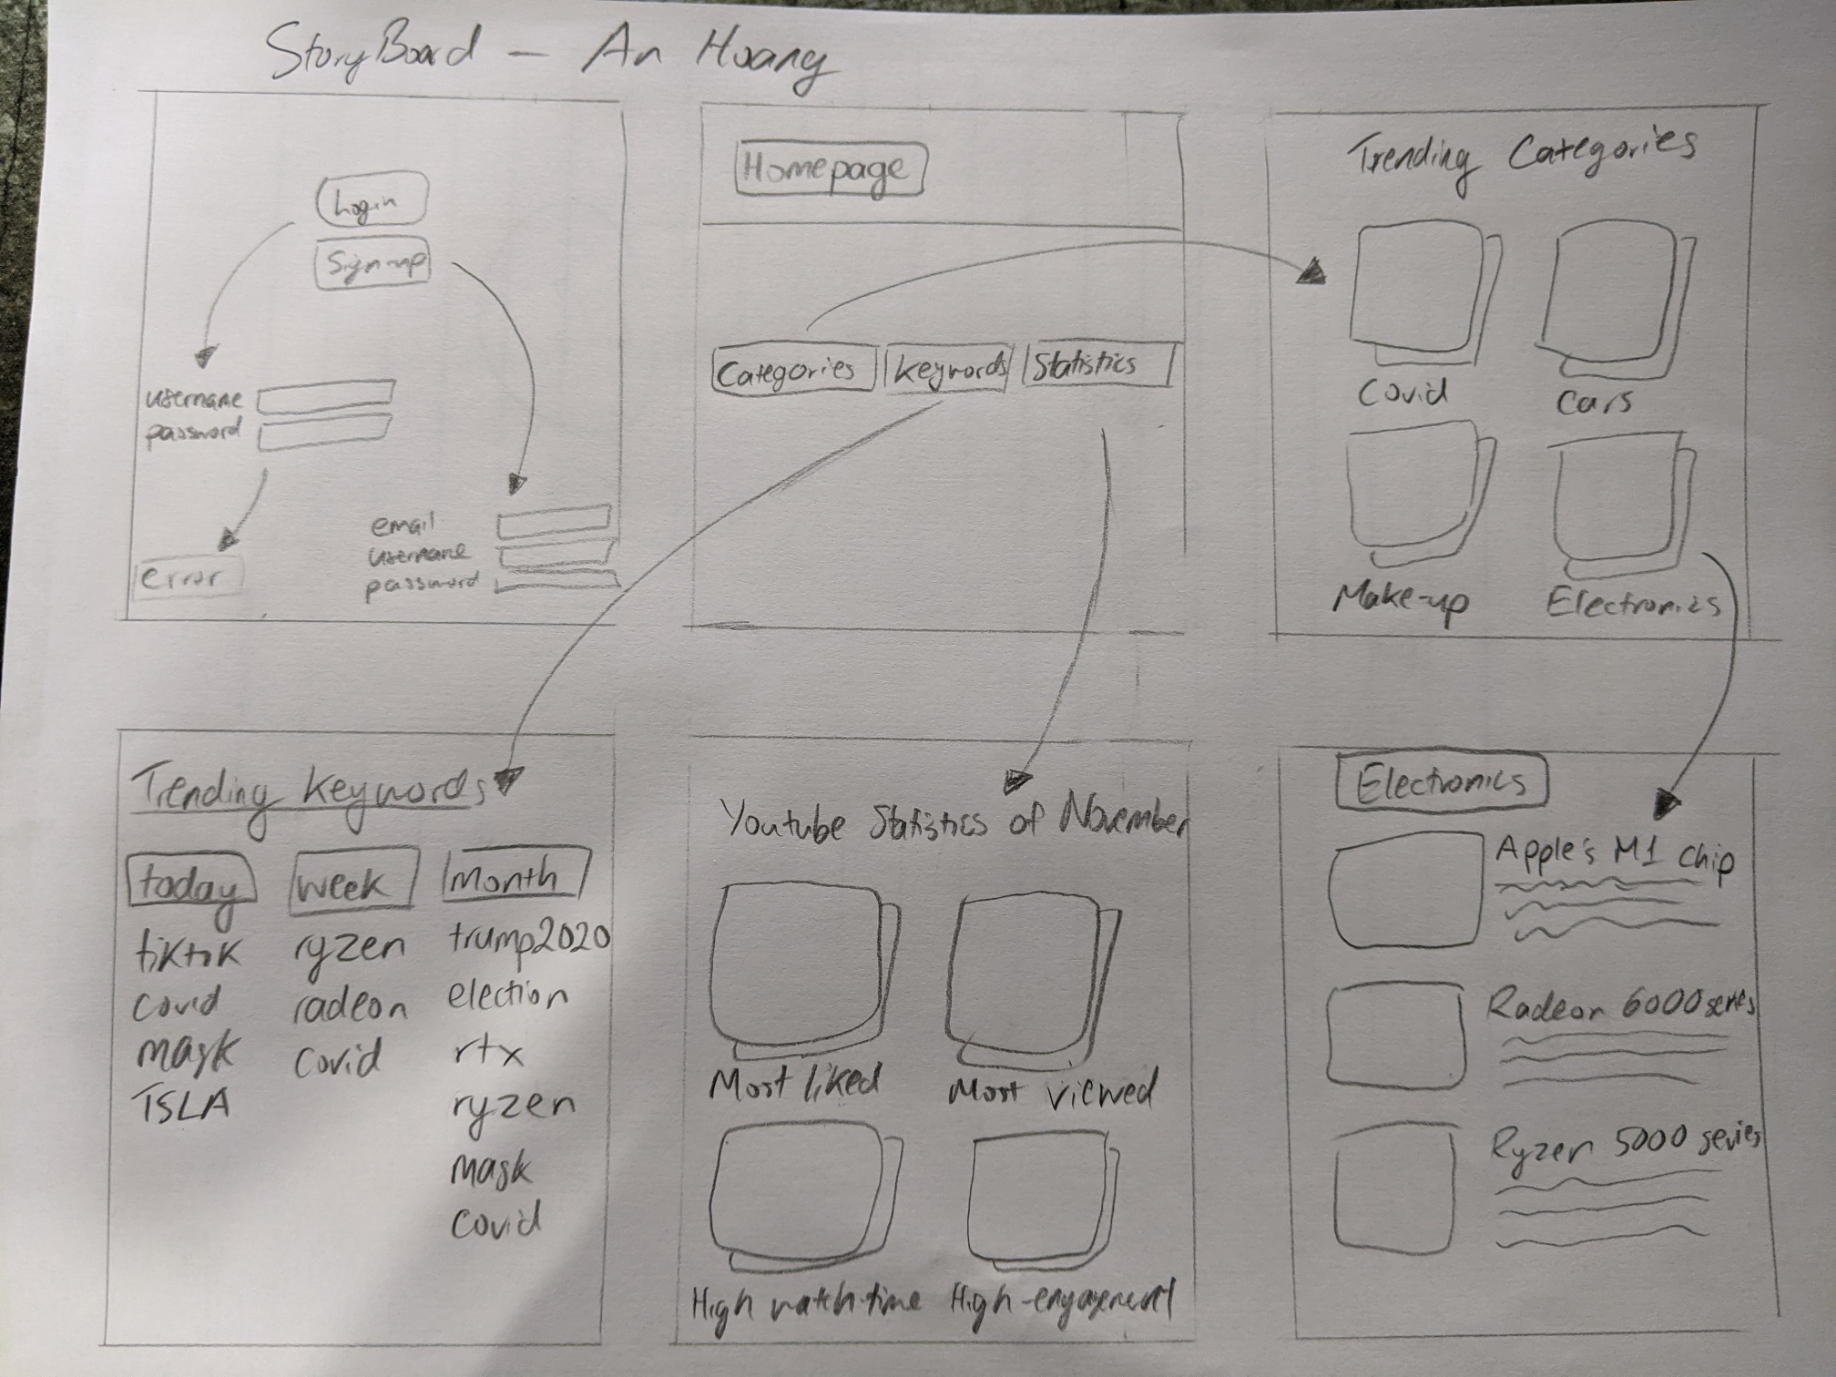 StoryBoard - An Hoang
Login
Sign-up
username
password
error
email
username
password
Homepage
Categories Keywords Statistics
Trending Categories
Covid Cars
Make-up Electronics
Trending Keywords
today week Month
tiktok ryzen trump2020
covid radeon election
mask covid rtx
TSLA ryzen
mask
covid
Youtube Statistics of November
Most liked Most viewed
High watch-time High-engagement
Electronics
Apple's M1 chip
Radeon 6000 series
Ryzen 5000 series